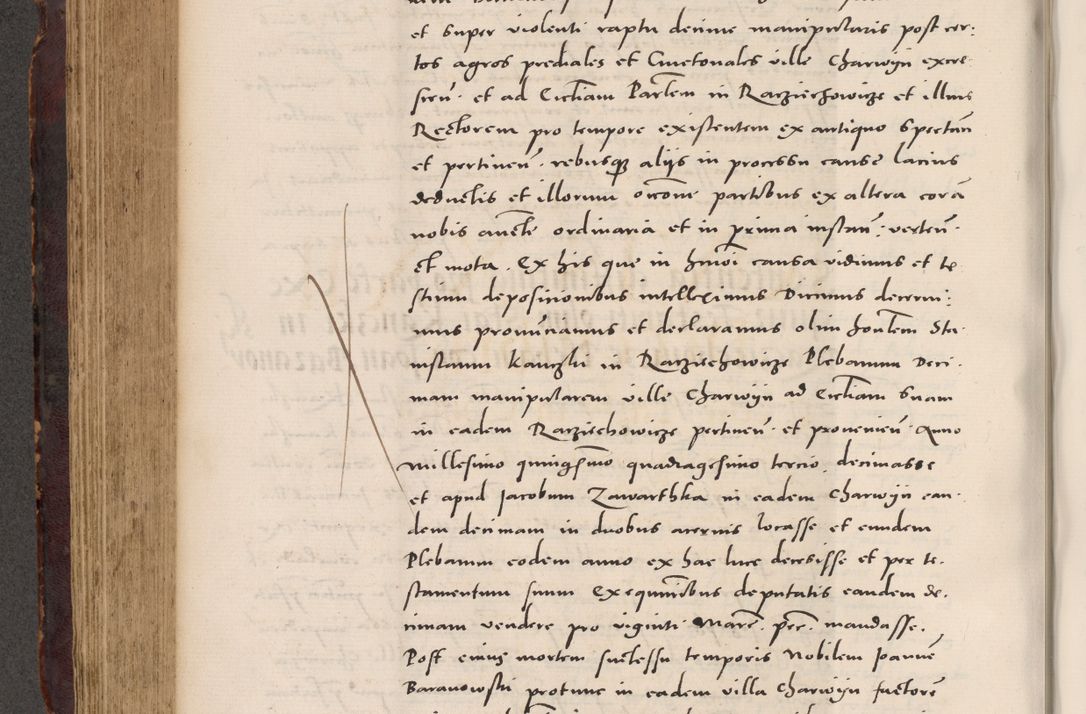 et super violenti raptu decime manipularis post cer:
tos agros prediales et Cmetonales ville Charwijn excre
sceñ. et ad Ecctiam Parlem in Racziechowicze et illius
Rectorem pro tempore existentem ex antiquo spectañ
et pertineñ. rebusqz alijs in processu cause lacius
deductis et illorum occone partibus ex altera corã
nobis aucte ordinaria et in prima instañ: verteñ.
et mota. Ex his que in hmoi causa vidimus et te
stium deposicionibus intelleximus Dicimus decerni:
mus pronunciamus et declaramus olim honlem Sta.
nislaum Kanczki in Racziechowicze Plebanum Deci.
mam manipularem ville Charwijn ad Eccliam suam
in eadem Racziechowicze pertineñ. et provenieñ. Anno
Millesimo quingmo quadragesimo tercio. decimasse
et apud Jacobum Zawarthka in eadem Charwijn ean.
dem decimam in duobus acervis locasse et eundem
Plebanum eodem anno ex hac luce decessisse et per te.
stamentum suum Exequutoribus deputatis eandem de.
cimam vendere pro viginti Marc. pec. mandasse.
Post cuius mortem successu temporis Nobilem Joannẽ
Baranowski protunc in eadem villa Charwijn factorẽ